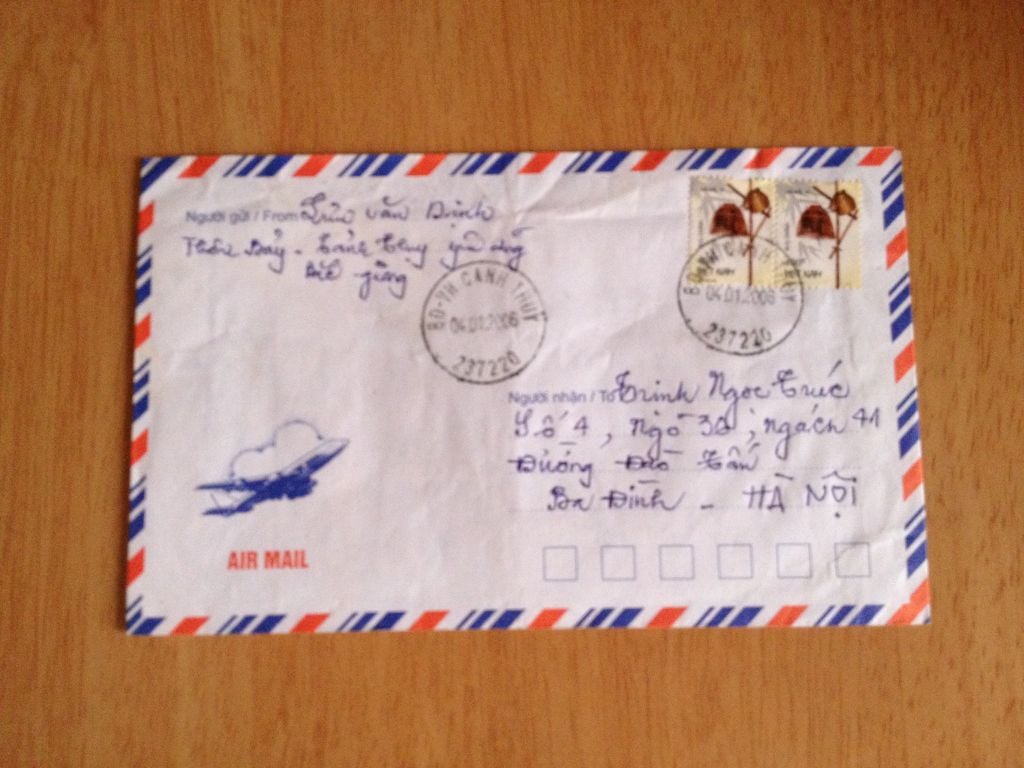 Người gửi / From Trần văn Định
Thôn Bảy - Cảnh Thụy yên dũng
Bắc giang
BĐ-VH CẢNH THỤY
04.01.2006
237220
BĐ-VH CẢNH THỤY
04.01.2006
237220
VIỆT NAM
VIỆT NAM
Người nhận / To Trịnh Ngọc Trúc
Số 4, Ngõ 30, ngách 41
Đường Đốc
Ba Đình - HÀ NỘI
AIR MAIL